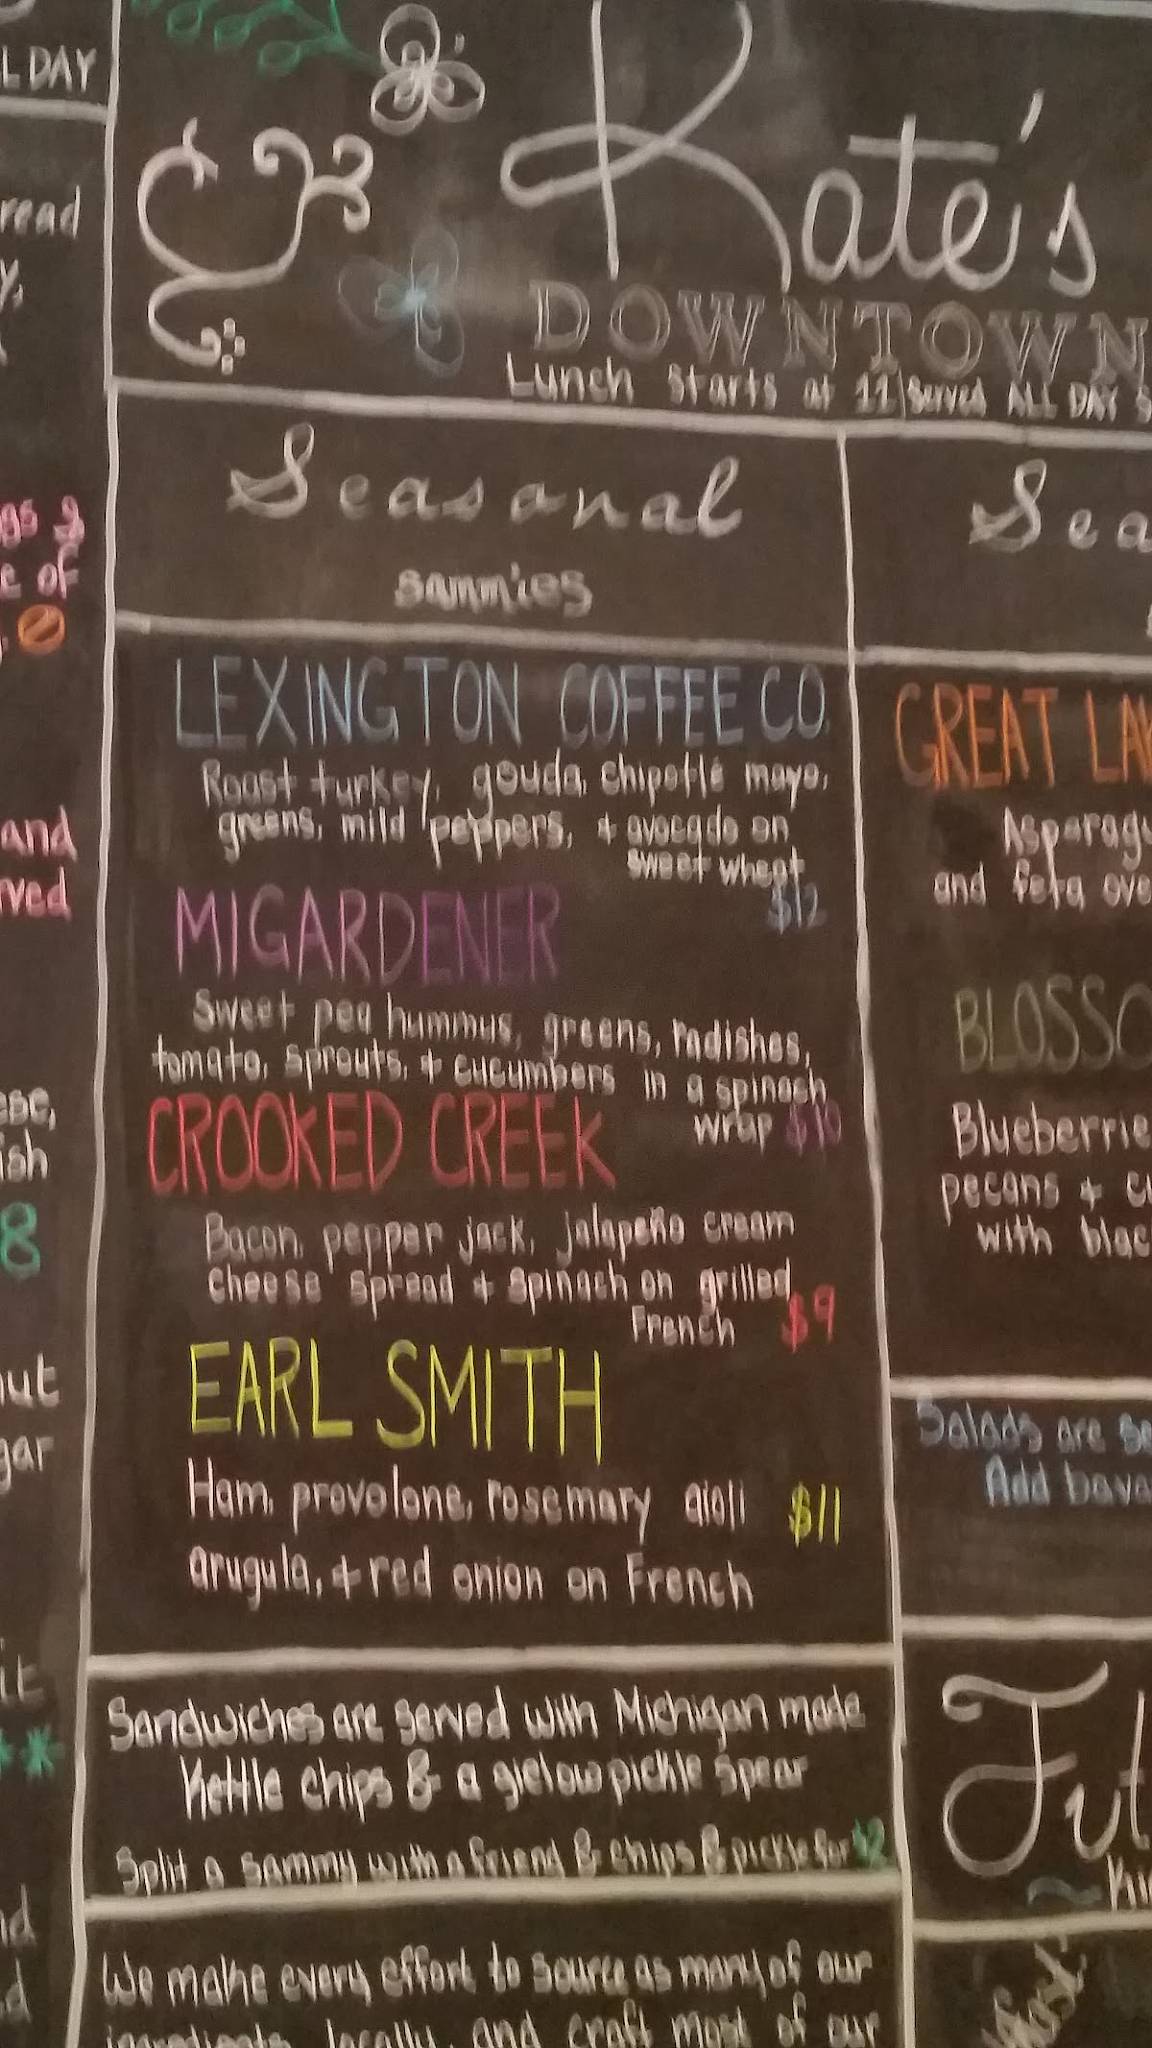 L DAY
read
Kate's
DOWNTOWN
Lunch starts at 11 | Served ALL DAY
Seasonal
sammies
LEXINGTON COFFEE CO.
Roast turkey, gouda, chipotle mayo,
greens, mild peppers, + avocado on
sweet wheat
$12
MIGARDENER
Sweet pea hummus, greens, radishes,
tomato, sprouts, + cucumbers in a spinach
wrap $10
CROOKED CREEK
Bacon, pepper jack, jalapeño cream
cheese spread + spinach on grilled
French $9
EARL SMITH
Ham, provolone, rosemary aioli $11
arugula, + red onion on French
Sandwiches are served with Michigan made
Kettle chips & a gielow pickle spear
Split a sammy with a friend & chips & pickle for $2
We make every effort to source as many of our
ingredients locally, and craft most of our
Sea
GREAT LA
Asparag
and feta ove
BLOSSO
Blueberrie
pecans +
with blac
Salads are se
Add
and
rved
8
of